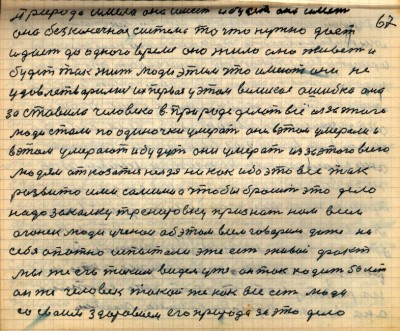 67
природа имела она имеет и будет она иметь
она безконечная система то что нужно дает
и дает до одного время оно жило оно живет и
будит так жит люди этим что имеют они не
удовлетварились и первая у этом великая ошибка она
заставила человека в природе делат всё из за этого
люди стали по одиночки умират они в этом умерали и
в этом умерают и будут они умерат из за этого всего
людям отказатся нельзя ни как ибо это все так
развито ими самими а чтобы бросит это дело
надо закалку тренировку признат нам всем
а гонек люди ученаи об этом всем говорим даже на
себя опятно испытали это есть живой факт
мы же его таким видели уже он так ходит болит
он же человек такой же как все есть люди
со своим здоровием его природа за это дело